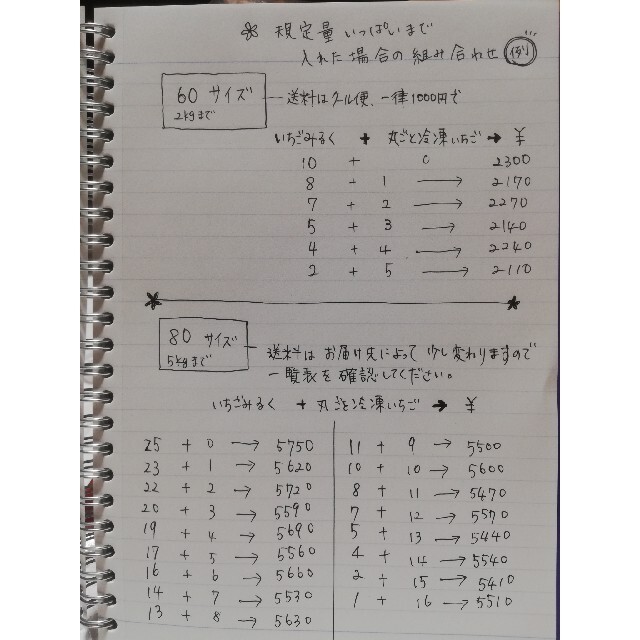 * 規定量いっぱいまで
入れた場合の組み合わせ 例
60 サイズ
2kgまで
送料はクール便、一律1000円で
いちごみるく + 丸ごと冷凍いちご → ¥
10 + 0 2300
8 + 1 → 2170
7 + 2 → 2270
5 + 3 → 2140
4 + 4 → 2240
2 + 5 → 2110
80 サイズ
5kgまで
送料はお届け先によって少し変わりますので
一覧表を確認してください。
いちごみるく + 丸ごと冷凍いちご → ¥
25 + 0 → 5750
23 + 1 → 5620
22 + 2 → 5720
20 + 3 → 5590
19 + 4 → 5690
17 + 5 → 5560
16 + 6 → 5660
14 + 7 → 5530
13 + 8 → 5630
11 + 9 → 5500
10 + 10 → 5600
8 + 11 → 5470
7 + 12 → 5570
5 + 13 → 5440
4 + 14 → 5540
2 + 15 → 5410
1 + 16 → 5510